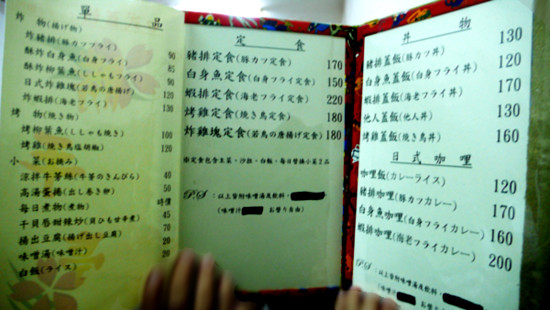 單品
炸 物(揚げ物)
炸豬排(豚カツフライ) 90
酥炸白身魚(白身フライ) 85
酥炸柳葉魚(ししゃもフライ)
日式炸雞塊(若鳥の唐揚げ)
炸蝦排(海老フライ)
烤 物(焼き物)
烤柳葉魚(ししゃも焼き) 100
烤雞(焼き鳥塩胡椒) 120
小 菜(お摘み)
涼拌牛蒡絲(牛蒡のきんぴら)
高湯蛋捲(出し巻き卵) 50
每日煮物(煮物) 時價
干貝唇甜辣炒(貝ひも甘辛煮) 70
揚出豆腐(揚げ出し豆腐)
味噌湯(味噌汁) 20
白飯(ライス)
定食
豬排定食(豚カツ定食) 170
白身魚定食(白身フライ定食) 150
蝦排定食(海老フライ定食) 220
烤雞定食(焼き鳥定食) 180
炸雞塊定食(若鳥の唐揚げ定食) 180
依定食包含生菜、沙拉、白飯、每日替換小菜2品
P.S :以上皆附味噌湯及飲料、
(味噌汁 お替り自由)
丼物
豬排蓋飯(豚カツ丼) 130
白身魚蓋飯(白身フライ丼) 120
蝦排蓋飯(海老フライ丼) 170
他人蓋飯(他人丼) 130
烤雞蓋飯(焼き鳥丼) 160
日式咖哩
咖哩飯(カレーライス) 120
豬排咖哩(豚カツカレー) 170
白身魚咖哩(白身フライカレー) 160
蝦排咖哩(海老フライカレー) 200
P.S :以上皆附味噌湯及飲料、
(味噌汁 お替り自由)